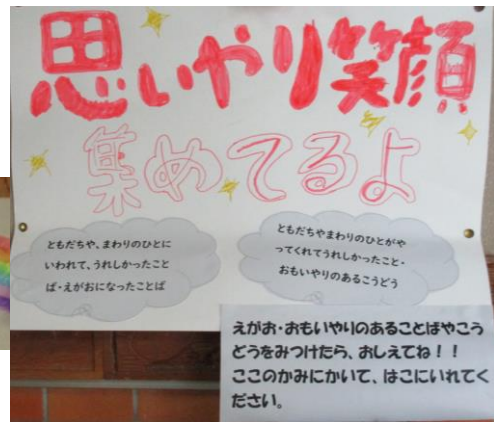 思いやり笑顔
集めてるよ
ともだちや、まわりのひとに
いわれて、うれしかったこと
ば・えがおになったことば
ともだちやまわりのひとがや
ってくれてうれしかったこと・
おもいやりのあるこうどう
えがお・おもいやりのあることばやこう
どうをみつけたら、おしえてね！！
ここのかみにかいて、はこにいれてく
ださい。